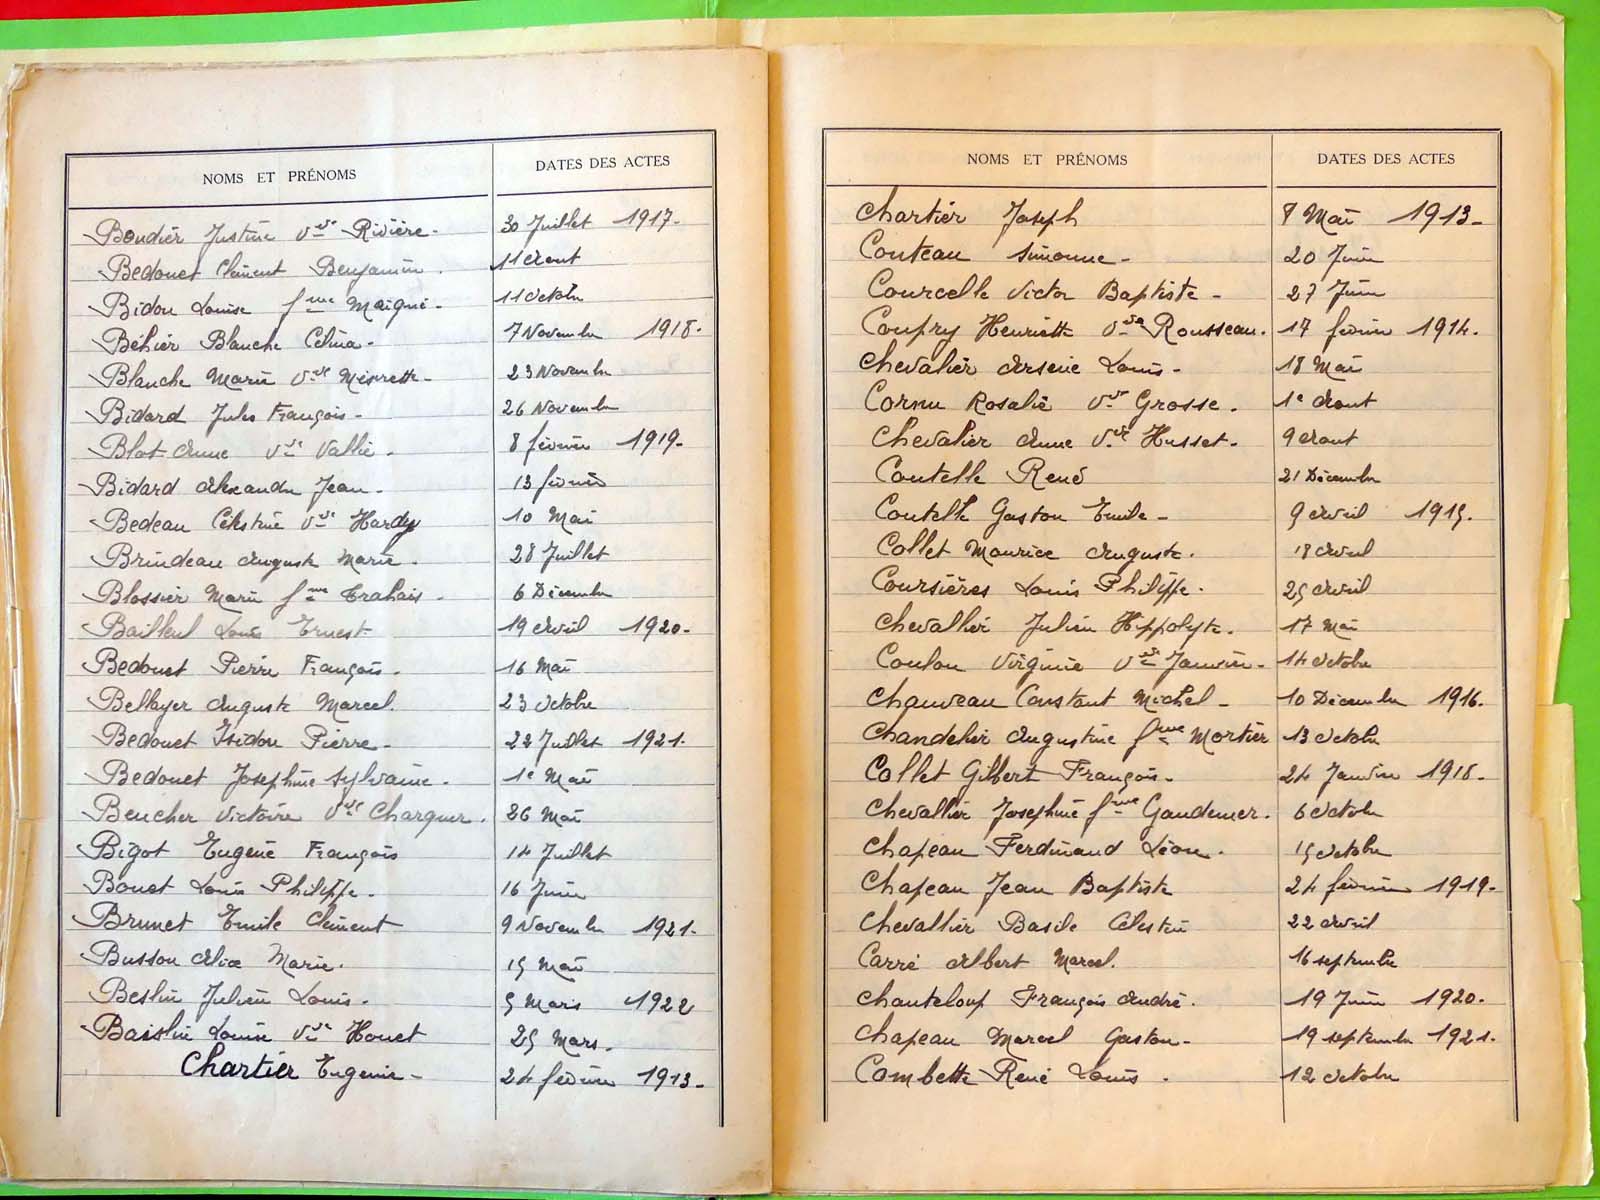 NOMS ET PRÉNOMS DATES DES ACTES
Boudier Justine Vve Rivière - 30 Juillet 1917 -
Bedouet Clément Benjamin - 11 Aout
Bidon Louise fme Maigné - 11 Octobre
Béhier Blanche Célina - 7 Novembre 1918 -
Blanche Marie Vve - 23 Novembre
Bidard Jules François - 26 Novembre
Blot Anne Vve Vallée - 8 février 1919 -
Bidard Alexandre Jean - 13 février
Bedeau Célestine Vve Hardy 10 Mai
Brindeau Auguste Marie - 28 Juillet
Blossier Marie fme Trahais - 6 Décembre
Bailleul Louis Ernest 19 Avril 1920 -
Bedouet Pierre François - 16 Mai
Bellayer Auguste Marcel. 23 Octobre
Bedouet Isidore Pierre - 22 Juillet 1921 -
Bedouet Josephine Sylvaine - 1e Mai
Beucher Victoire Vve 26 Mai
Bigot Eugène François 14 Juillet
Bouet Louis Philippe - 16 Juin
Brunet Emile Clément 9 Novembre 1921 -
Busson Alice Marie. 15 Mai
Beslin Julien Louis - 5 Mars 1922
Louise Vve Houet 25 Mars.
Chartier Eugénie - 24 février 1913 -
NOMS ET PRÉNOMS DATES DES ACTES
Chartier Joseph 8 Mai 1913 -
Couteau Simonne - 20 Juin
Courcelle Victor Baptiste - 27 Juin
Coupry Henriette Vve Rousseau. 17 février 1914 -
Chevalier Arsène Louis - 18 Mai
Cornu Rosalie Vve Grosse. 1e Aout
Chevalier Anne Vve Husset - 9 Aout
Coutelle René 21 Décembre
Coutelle Gaston Emile - 9 Avril 1915 -
Collet Maurice Auguste. 18 Avril
Coursières Louis Philippe. 25 Avril
Chevallier Julien Hippolyte. 17 Mai
Coulon Virginie Vve Janvrin - 14 Octobre
Chauveau Constant Michel - 10 Décembre 1916 -
Chandelier Augustine fme Mortier 13 Octobre
Collet Gilbert François - 24 Janvier 1918 -
Chevallier Josephine fme Gaudemer. 6 Octobre
Chapeau Ferdinand Léon. 15 Octobre
Chapeau Jean Baptiste 24 février 1919 -
Chevallier Basile Célestin 22 Avril
Carré Albert Marcel. 16 septembre
Chanteloup François André. 19 Juin 1920 -
Chapeau Marcel Gaston - 19 septembre 1921 -
Combette René Louis. 12 Octobre